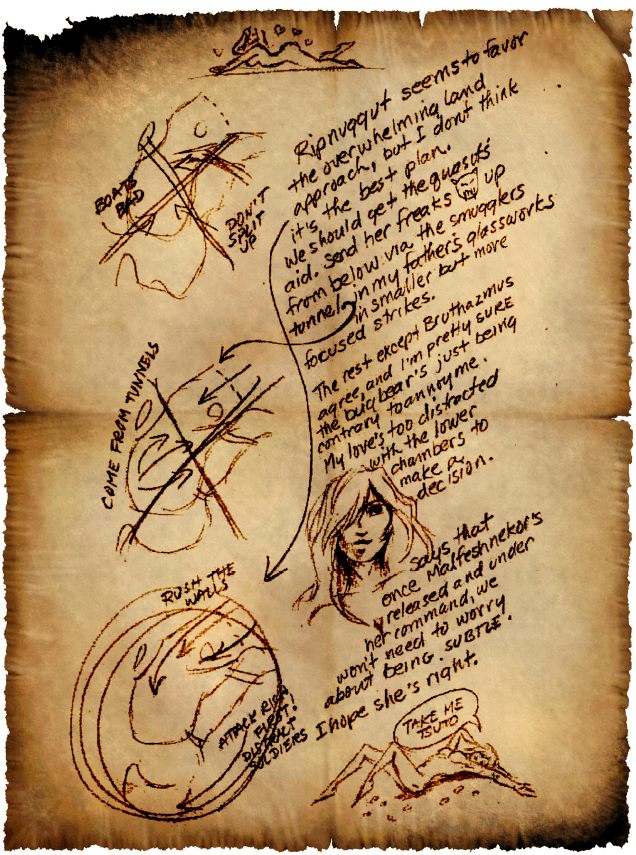 Ripnuggut seems to favor
the overwhelming land
approach, but I don't think
it's the best plan.
We should get the quasits'
aid. Send her freaks up
from below via the smugglers
tunnel in my father's glassworks
in smaller but more
focused strikes.
The rest except Bruthazmus
agree, and I'm pretty SURE
the bugbear's just being
contrary to annoy me.
My love's too distracted
with the lower
chambers to
make a
decision.
says that
once Malfeshnekor's
released and under
her command, we
won't need to worry
about being SUBTLE.
I hope she's right.
BOATS
BAD
DON'T
SPLIT
UP
COME FROM TUNNELS
RUSH THE
WALLS
ATTACK RICH
FIRST!
DISTRACT
SOLDIERS
TAKE ME
TSUTO